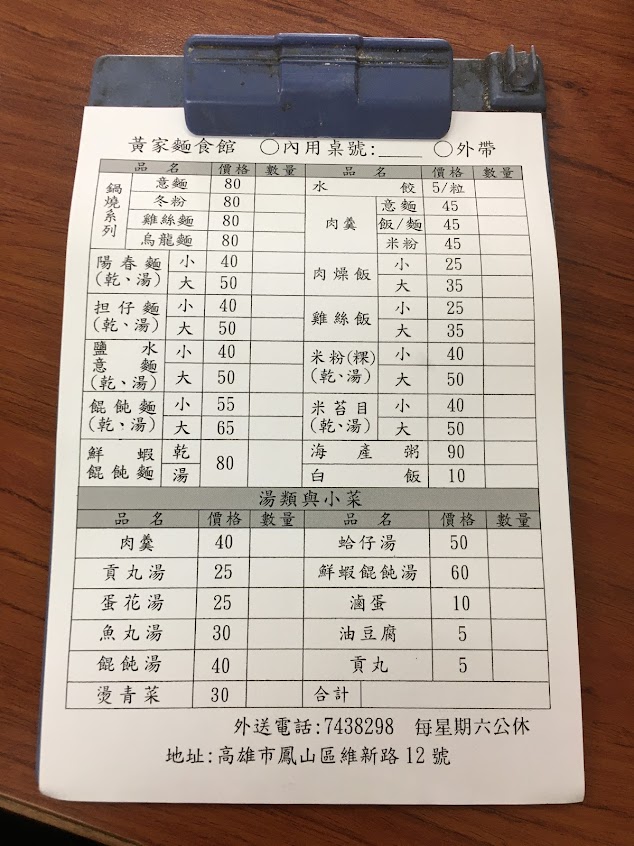 黃家麵食館 ○內用桌號:____ ○外帶
品名 價格 數量 品名 價格 數量
鍋燒系列 意麵 80
冬粉 80
雞絲麵 80
烏龍麵 80
陽春麵(乾、湯) 小 40
大 50
担仔麵(乾、湯) 小 40
大 50
鹽水意麵(乾、湯) 小 40
大 50
餛飩麵(乾、湯) 小 55
大 65
鮮蝦餛飩麵 乾 湯 80
水餃 5/粒
肉羹 意麵 45
飯/麵 45
米粉 45
肉燥飯 小 25
大 35
雞絲飯 小 25
大 35
米粉(粿)(乾、湯) 小 40
大 50
米苔目(乾、湯) 小 40
大 50
海產粥 90
白飯 10
湯類與小菜
品名 價格 數量 品名 價格 數量
肉羹 40 蛤仔湯 50
貢丸湯 25 鮮蝦餛飩湯 60
蛋花湯 25 滷蛋 10
魚丸湯 30 油豆腐 5
餛飩湯 40 貢丸 5
燙青菜 30 合計
外送電話:7438298 每星期六公休
地址:高雄市鳳山區維新路12號